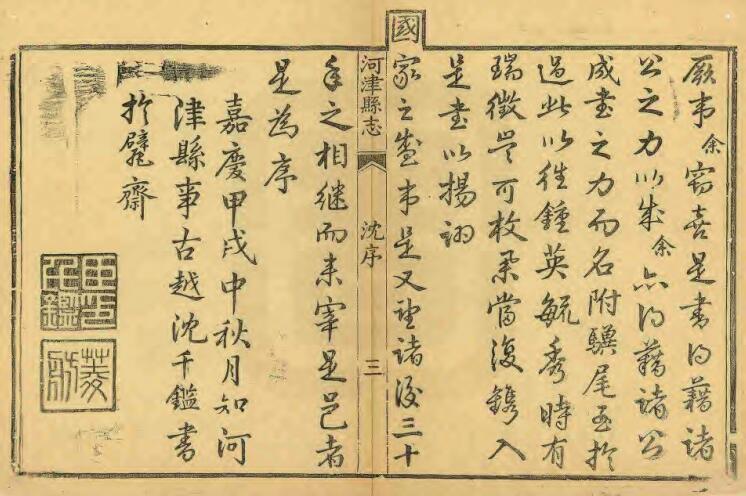 厥事余窃喜是書得藉諸
公之力以成余亦得藉諸公
成書之力而名附驥尾至於
過此以往鍾英毓秀時有
瑞徵豈可枚舉當復鐫入
是書以揚詡
國家之盛事是又望諸後三十
河津縣志
沈序
三
年之相继而来宰是邑者
是為序
嘉慶甲戌中秋月知河
津縣事古越沈千鑑書
於甓齋